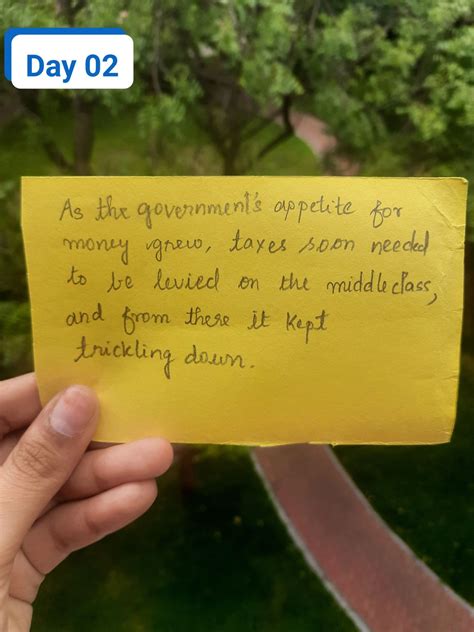 Day 02
As the government's appetite for
money grew, taxes soon needed
to be levied on the middle class,
and from there it kept
trickling down.